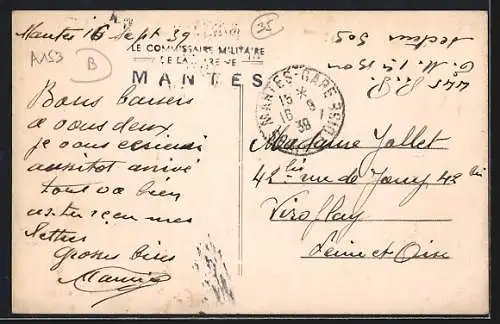 Mantes 16 Sept 39
35
A153
B
LE COMMISSAIRE MILITAIRE
DE LA GARE DE
MANTES
MANTES-GARE
15
16 9
39
Bons baisers
à vous deux
je vous écrirai
aussitôt arrivé
tout va bien
as tu reçu mes
lettres
grosses bises
Secteur 505
Madame Jallet
42 bis rue de Jouy 42 bis
Viroflay
Seine et Oise